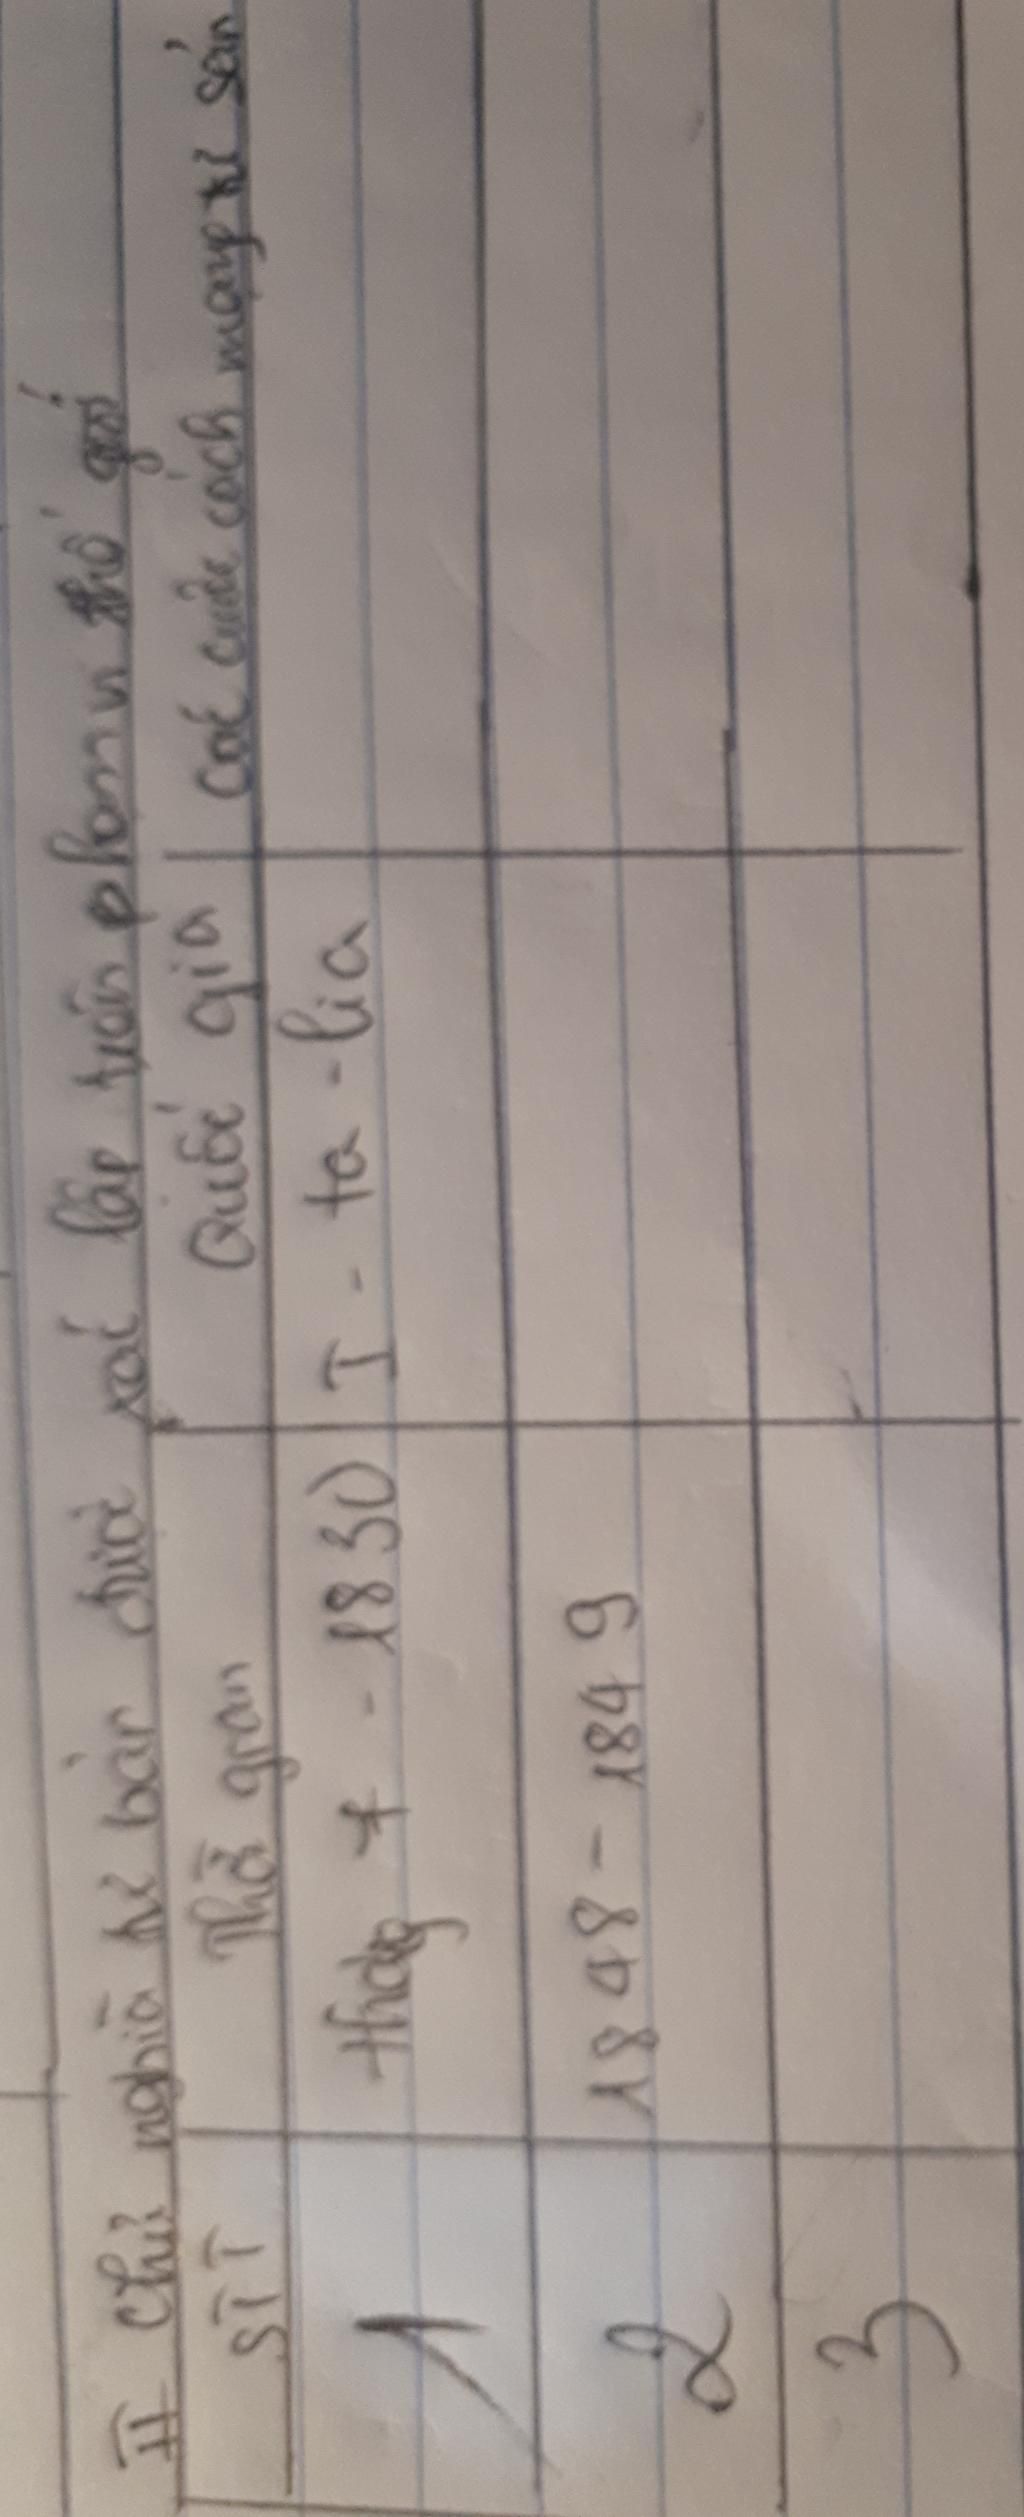 II Chủ nghĩa tư bản được xác lập trên phạm vi thế giới
STT Thời gian Quốc gia Các cuộc cách mạng tư sản
1 tháng 7 - 1830 I - ta - lia
2 1848 - 1849
3